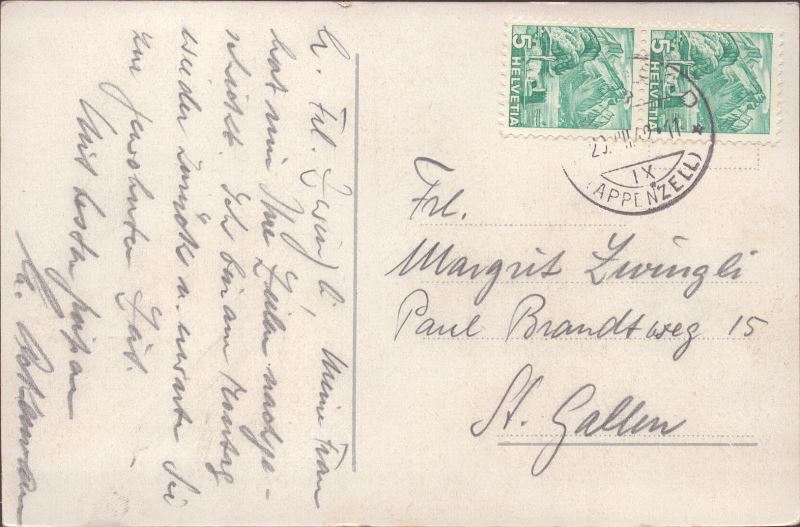 L. Frl. Zwingli, Meine Frau
hat mir Ihre Zeilen nachge-
schickt. Ich bin am Montag
wieder zurück u. erwarte Sie
zur gewohnten Zeit.
Mit besten Grüssen
5 HELVETIA
5 HELVETIA
IX
(APPENZELL) *
Frl.
Margrit Zwingli
Paul Brandtweg 15
St. Gallen